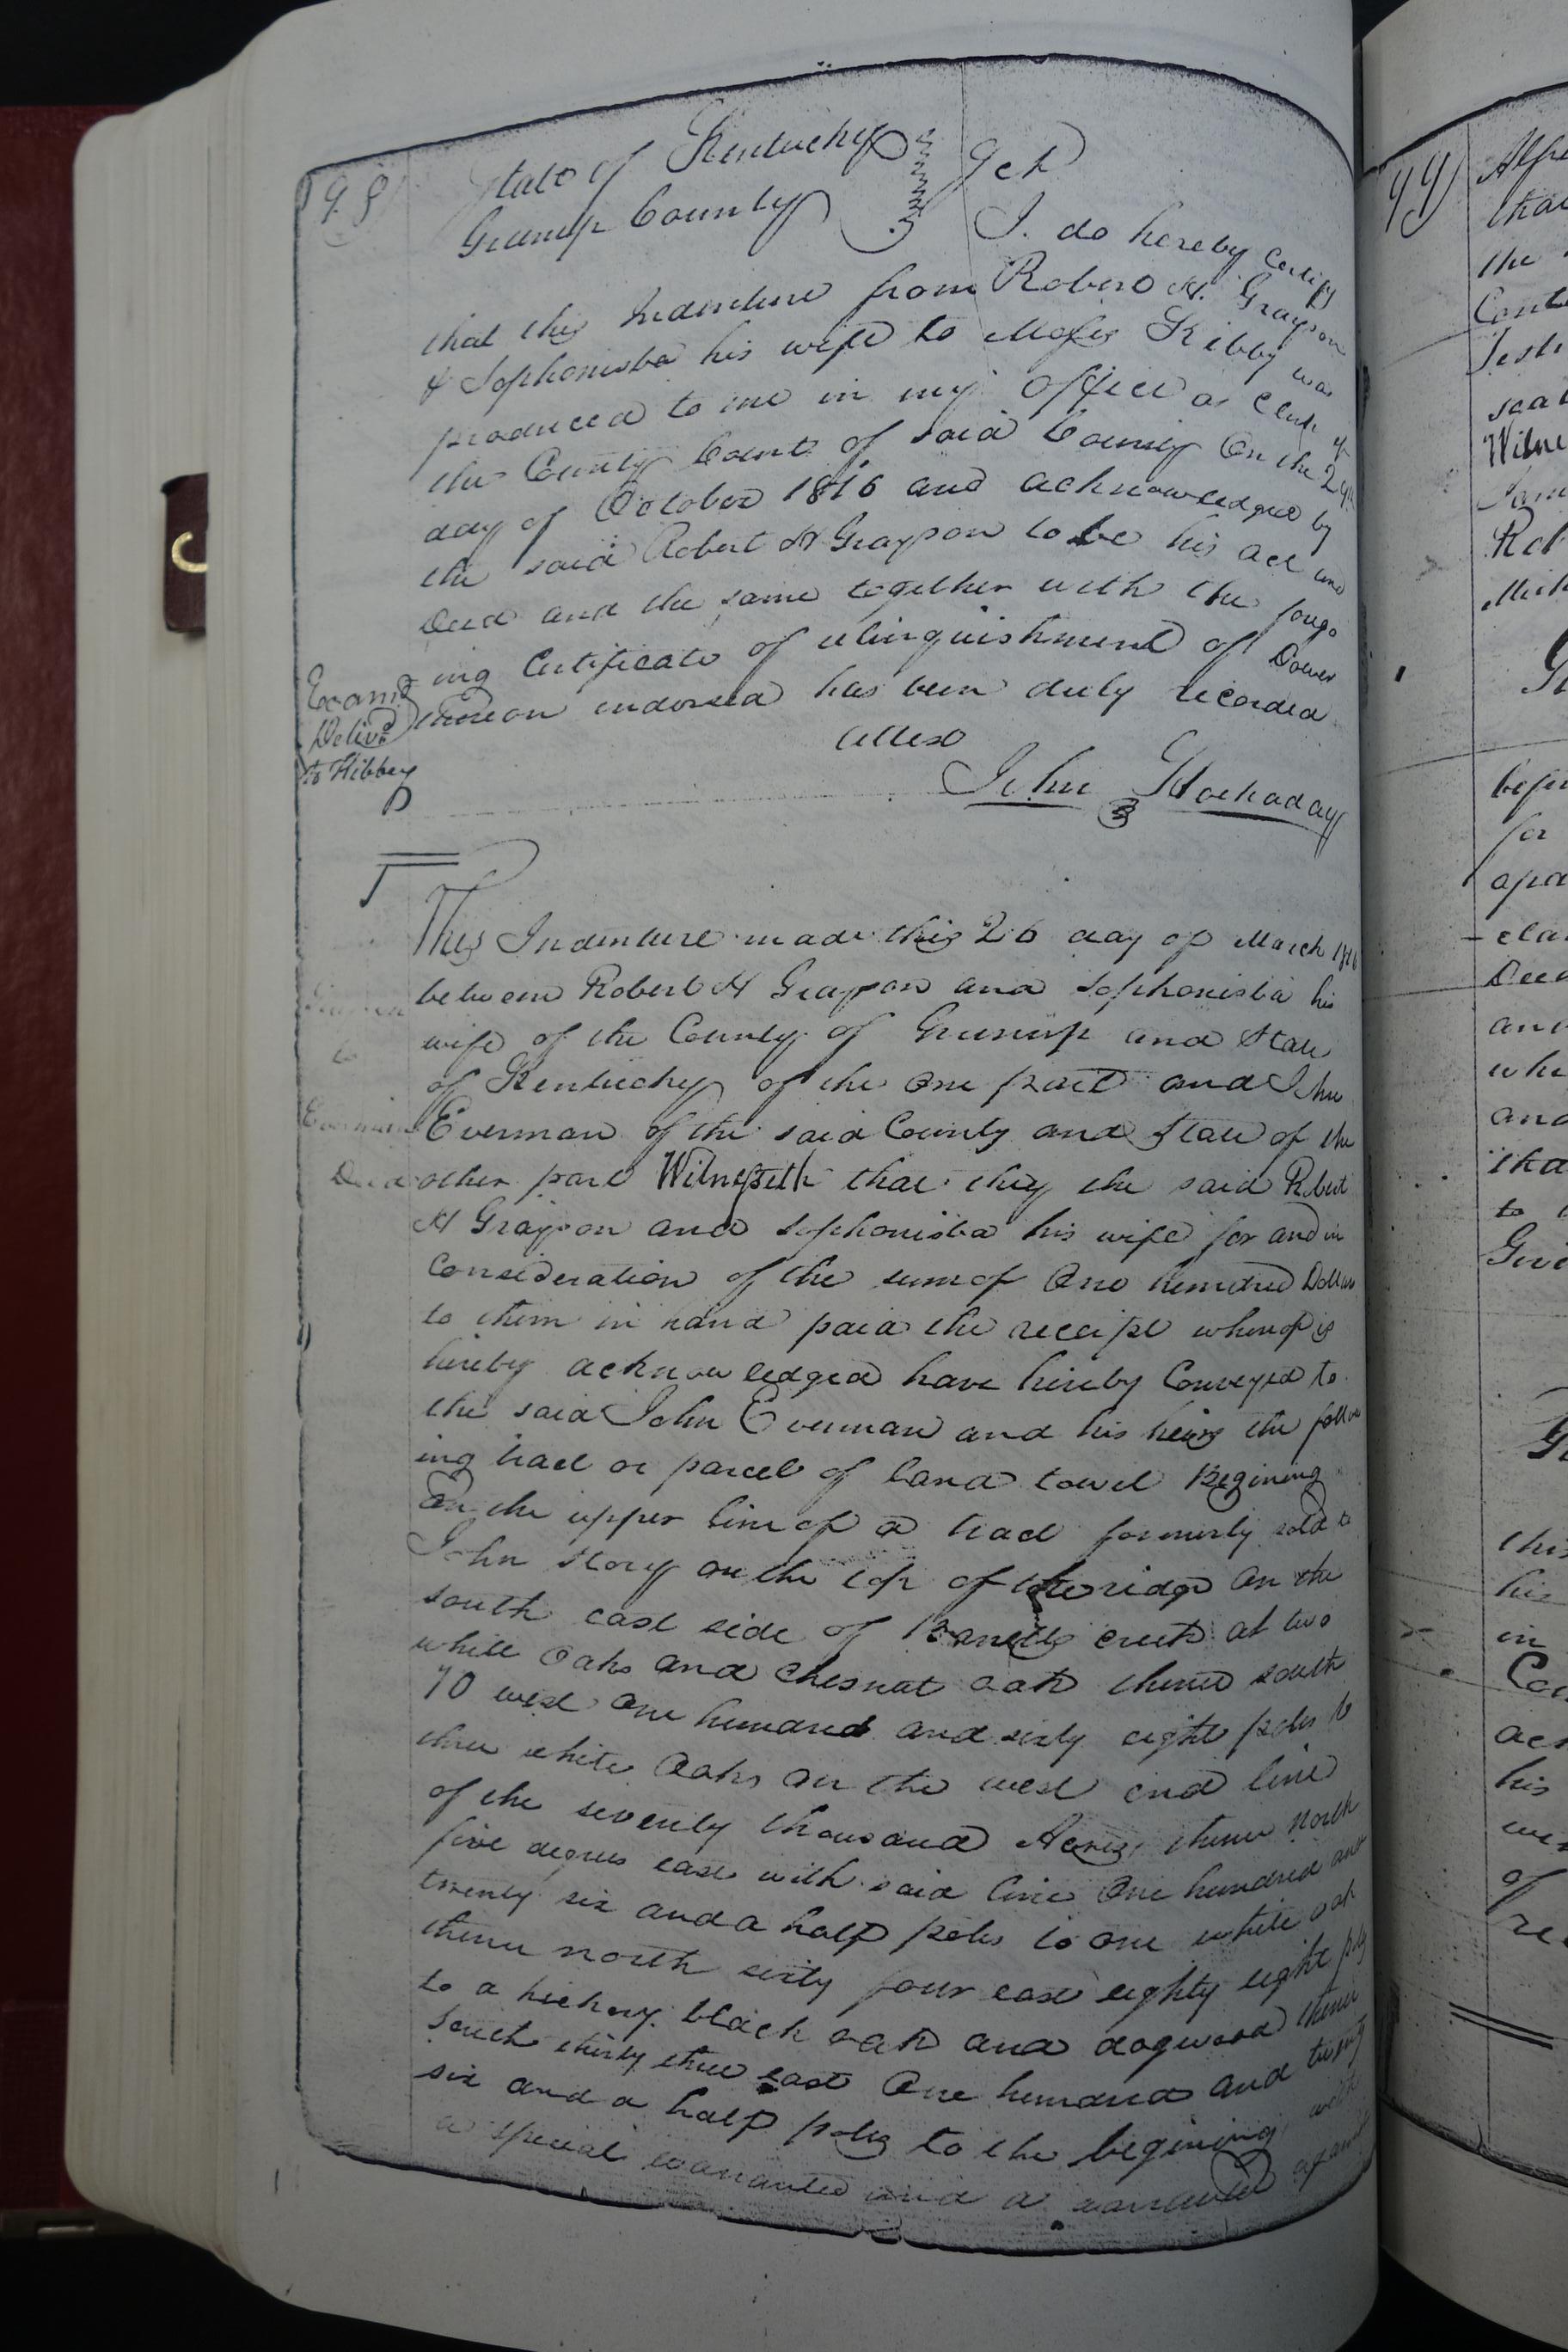 98
State of Kentucky
Greenup County Sct
I do hereby certify
that this Indenture from Robert H. Grayson
& Sophonisba his wife to Moses Kibby was
produced to me in my office as Clerk of
the County Court of said County On the 29th
day of October 1816 and acknowledged by
the said Robert H Grayson to be his act and
Deed and the same together with the forgo
ing Certificate of relinquishment of Dower
thereon indorsed has been duly recorded
Attest
John Hockaday
Examd
Delivd
to Kibbey
This Indenture made this 26 day of March 1816
between Robert H Grayson and Sophonisba his
wife of the County of Greenup and State
of Kentucky of the one part and John
Everman of the said County and State of the
other part Witnesseth that they the said Robert
H Grayson and Sophonisba his wife for and in
Consideration of the sum of One hundred Dollars
to them in hand paid the receipt whereof is
hereby acknowledged have hereby Conveyed to
the said John Everman and his heirs the follow
ing tract or parcel of land towit Begining
On the upper line of a tract formerly sold to
John Story on the top of the ridge on the
south east side of creek at two
white Oaks and Chesnut oak thence south
70 west One hundred and sixty eight poles to
three white Oaks on the west end line
of the seventy thousand Acres, thence North
five degrees east with said line One hundred and
twenty six and a half poles to one white oak
thence north sixty four east eighty eight poles
to a hickory black oak and dogwood thence
South thirty three east One hundred and twenty
six and a half poles to the begining with
a special warrantee and a warrantee against
Grayson
to
Everman
Deed
99
Alfre
that
the
Cont
Testi
seal
Witne
Sam
Rob
Mich
befor
for
apa
clai
Deed
and
whe
and
tha
to
Give
this
his
in
Cou
ack
his
wa
of
re